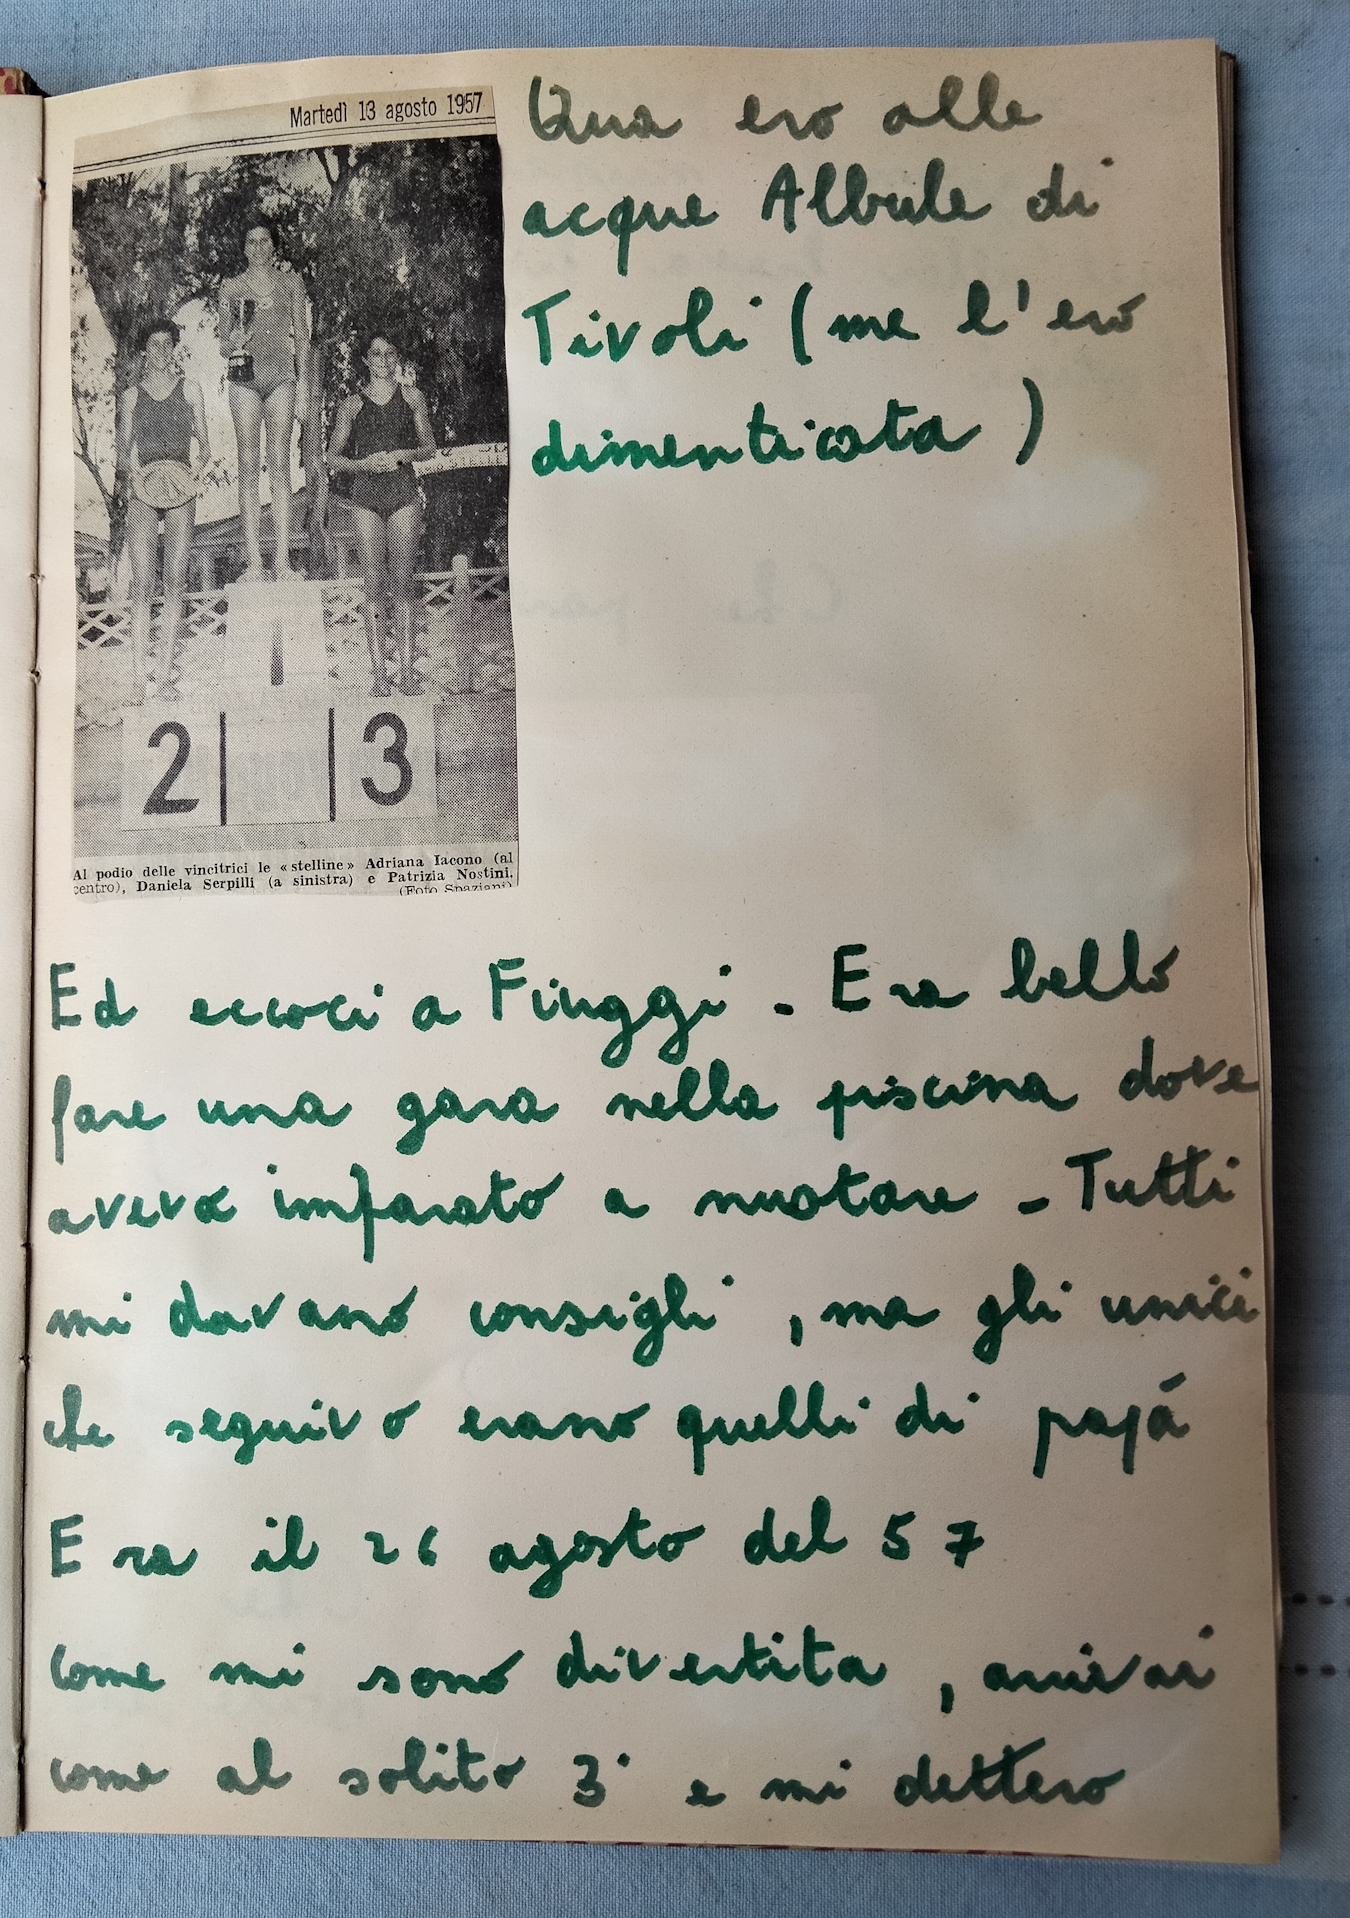 Martedì 13 agosto 1957
Qua ero alle
acque Albule di
Tivoli (me l'ero
dimenticata)
1
2 3
Al podio delle vincitrici le «stelline» Adriana Iacono (al
centro), Daniela Serpilli (a sinistra) e Patrizia Nostini.
(Foto Spaziani)
Ed eccoci a Fiuggi - Era bello
fare una gara nella piscina dove
avevo imparato a nuotare - Tutti
mi davano consigli, ma gli unici
che seguivo erano quelli di papá
Era il 26 agosto del 57
come mi sono divertita, arrivai
come al solito 3ª e mi dettero